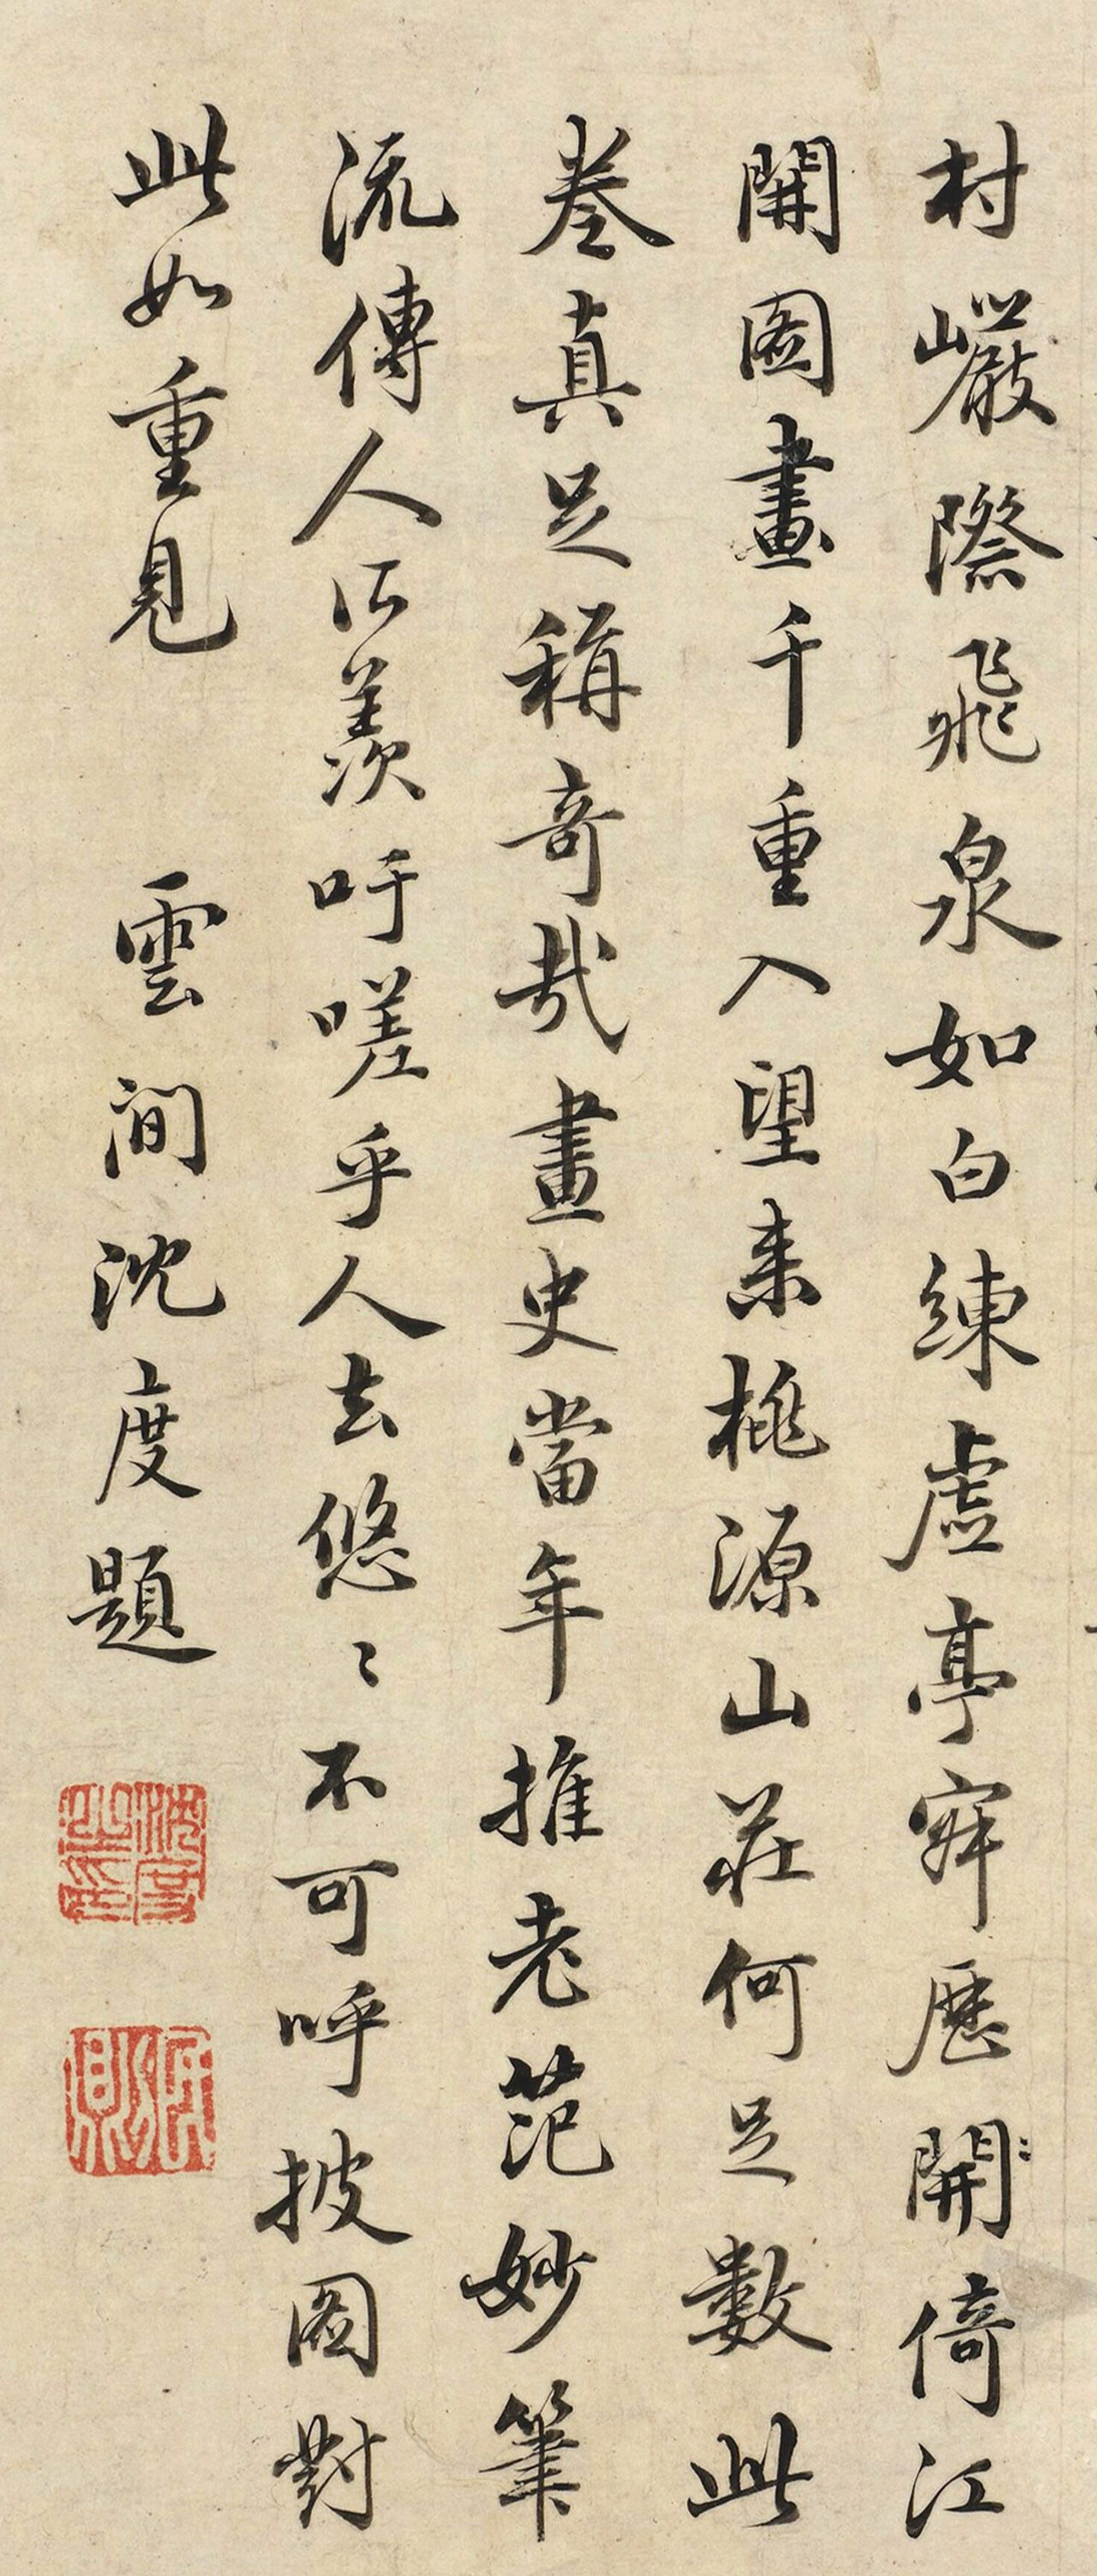 村巖際飛泉如白練虛亭寂歷開倚江
開圖畫千重入望來桃源山莊何足數此
卷真足稱奇哉畫史當年推老范妙筆
流傳人所羨吁嗟乎人去悠〻不可呼披圖對
此如重見 雲間沈度題
沈度之印